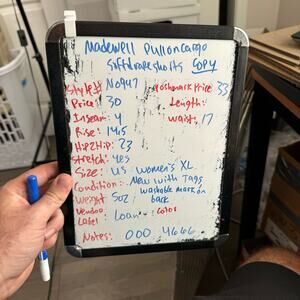 Madewell Pull on cargo
Softdrape shorts Copy
Style#: N0947 Poshmark Price: 33
Price: 30 Length:
Inseam: 4 Waist: 17
Rise: 14.5
Hip2Hip: 23
Stretch: Yes
Size: US Women's XL
Condition: New with Tags
washable mark on
back
Weight 5oz
Vendor: Loan : Color
Label
Notes: 000 4666